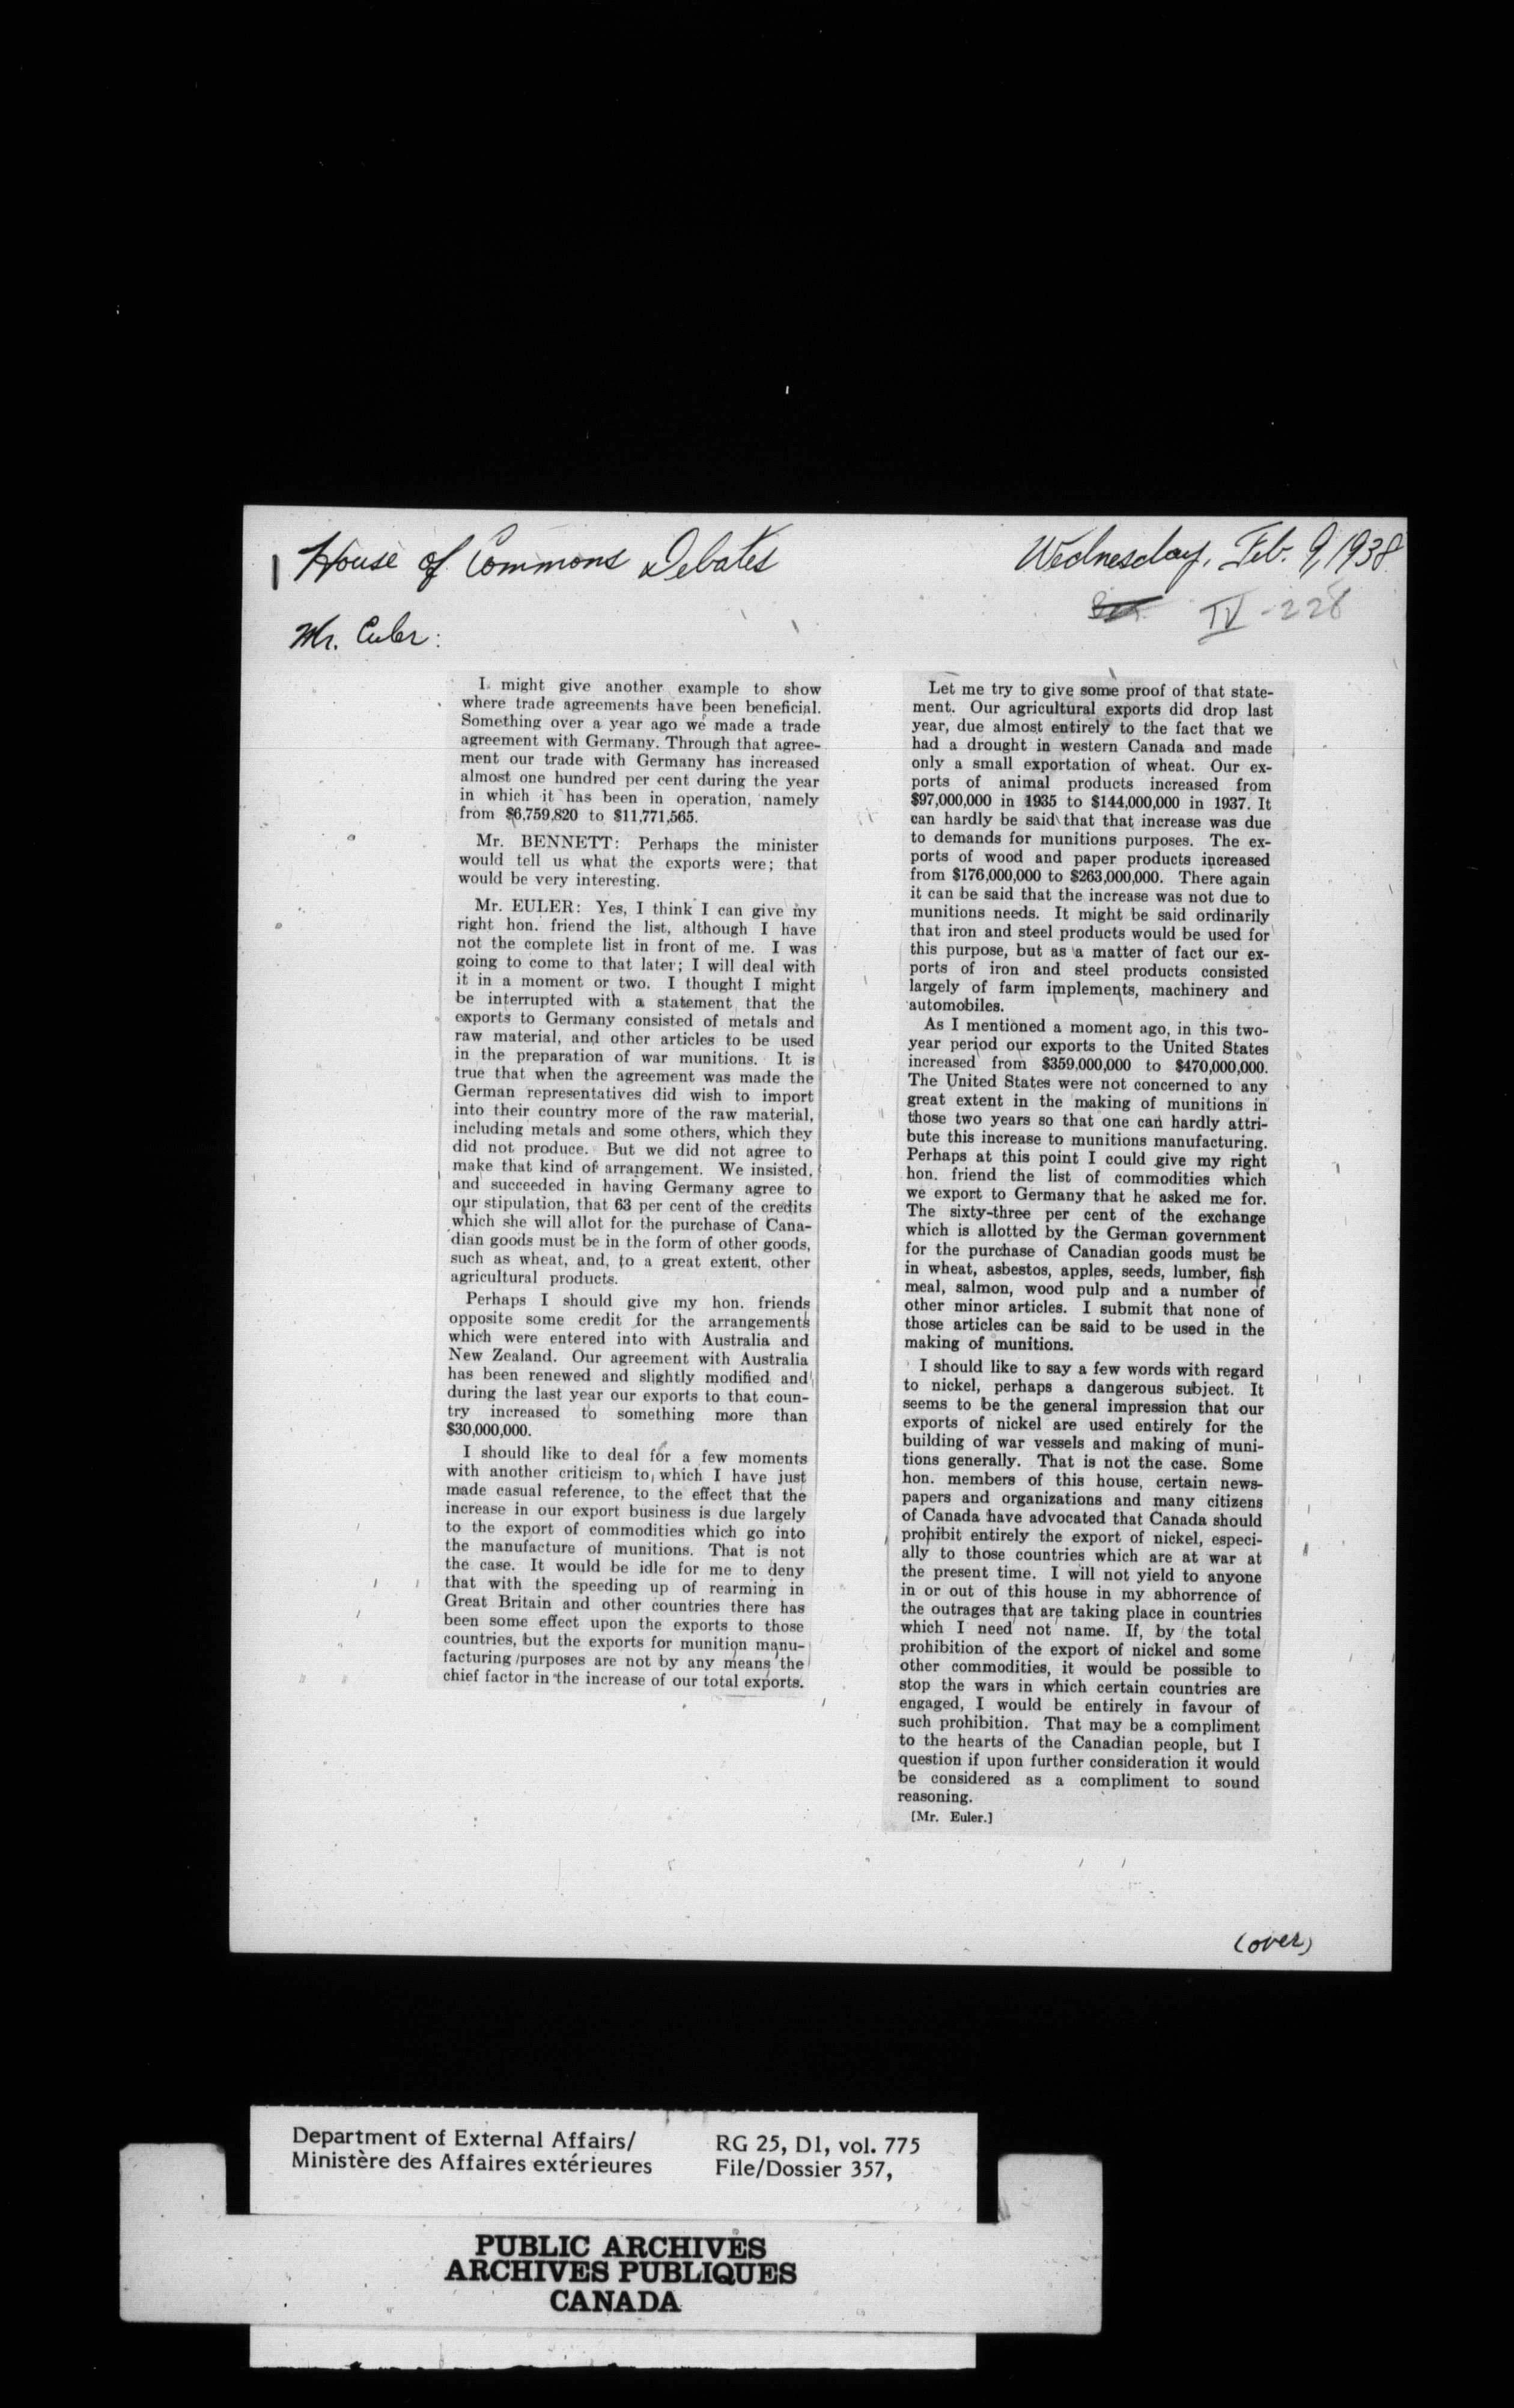 House of Commons Debates
Wednesday, Feb. 9, 1938
IV-228
Mr. Euler:
I might give another example to show
where trade agreements have been beneficial.
Something over a year ago we made a trade
agreement with Germany. Through that agree-
ment our trade with Germany has increased
almost one hundred per cent during the year
in which it has been in operation, namely
from $6,759,820 to $11,771,565.
Mr. BENNETT: Perhaps the minister
would tell us what the exports were; that
would be very interesting.
Mr. EULER: Yes, I think I can give my
right hon. friend the list, although I have
not the complete list in front of me. I was
going to come to that later; I will deal with
it in a moment or two. I thought I might
be interrupted with a statement that the
exports to Germany consisted of metals and
raw material, and other articles to be used
in the preparation of war munitions. It is
true that when the agreement was made the
German representatives did wish to import
into their country more of the raw material,
including metals and some others, which they
did not produce. But we did not agree to
make that kind of arrangement. We insisted,
and succeeded in having Germany agree to
our stipulation, that 63 per cent of the credits
which she will allot for the purchase of Cana-
dian goods must be in the form of other goods,
such as wheat, and, to a great extent, other
agricultural products.
Perhaps I should give my hon. friends
opposite some credit for the arrangements
which were entered into with Australia and
New Zealand. Our agreement with Australia
has been renewed and slightly modified and
during the last year our exports to that coun-
try increased to something more than
$30,000,000.
I should like to deal for a few moments
with another criticism to which I have just
made casual reference, to the effect that the
increase in our export business is due largely
to the export of commodities which go into
the manufacture of munitions. That is not
the case. It would be idle for me to deny
that with the speeding up of rearming in
Great Britain and other countries there has
been some effect upon the exports to those
countries, but the exports for munition manu-
facturing purposes are not by any means the
chief factor in the increase of our total exports.
Let me try to give some proof of that state-
ment. Our agricultural exports did drop last
year, due almost entirely to the fact that we
had a drought in western Canada and made
only a small exportation of wheat. Our ex-
ports of animal products increased from
$97,000,000 in 1935 to $144,000,000 in 1937. It
can hardly be said that that increase was due
to demands for munitions purposes. The ex-
ports of wood and paper products increased
from $176,000,000 to $263,000,000. There again
it can be said that the increase was not due to
munitions needs. It might be said ordinarily
that iron and steel products would be used for
this purpose, but as a matter of fact our ex-
ports of iron and steel products consisted
largely of farm implements, machinery and
automobiles.
As I mentioned a moment ago, in this two-
year period our exports to the United States
increased from $359,000,000 to $470,000,000.
The United States were not concerned to any
great extent in the making of munitions in
those two years so that one can hardly attri-
bute this increase to munitions manufacturing.
Perhaps at this point I could give my right
hon. friend the list of commodities which
we export to Germany that he asked me for.
The sixty-three per cent of the exchange
which is allotted by the German government
for the purchase of Canadian goods must be
in wheat, asbestos, apples, seeds, lumber, fish
meal, salmon, wood pulp and a number of
other minor articles. I submit that none of
those articles can be said to be used in the
making of munitions.
I should like to say a few words with regard
to nickel, perhaps a dangerous subject. It
seems to be the general impression that our
exports of nickel are used entirely for the
building of war vessels and making of muni-
tions generally. That is not the case. Some
hon. members of this house, certain news-
papers and organizations and many citizens
of Canada have advocated that Canada should
prohibit entirely the export of nickel, especi-
ally to those countries which are at war at
the present time. I will not yield to anyone
in or out of this house in my abhorrence of
the outrages that are taking place in countries
which I need not name. If, by the total
prohibition of the export of nickel and some
other commodities, it would be possible to
stop the wars in which certain countries are
engaged, I would be entirely in favour of
such prohibition. That may be a compliment
to the hearts of the Canadian people, but I
question if upon further consideration it would
be considered as a compliment to sound
reasoning.
[Mr. Euler.]
(over)
Department of External Affairs/
Ministère des Affaires extérieures
RG 25, D1, vol. 775
File/Dossier 357,
PUBLIC ARCHIVES
ARCHIVES PUBLIQUES
CANADA